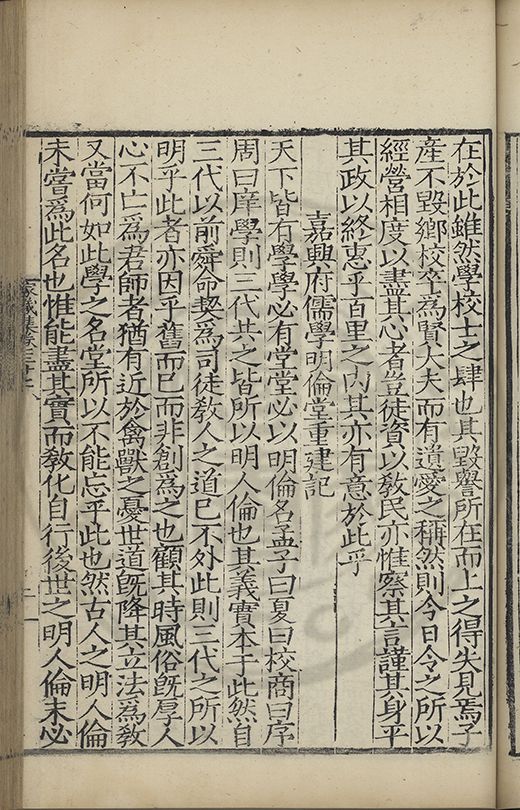 在於此雖然學校士之肆也其毀譽所在而上之得失見焉子
產不毀鄉校卒為賢大夫而有遺愛之稱然則今日令之所以
經營相度以盡其心者豈徒資以教民亦惟察其言謹其身平
其政以終惠乎百里之内其亦有意於此乎
嘉興府儒學明倫堂重建記
天下皆有學學必有堂堂必以明倫名孟子曰夏曰校商曰序
周曰庠學則三代共之皆所以明人倫也其義實本于此然自
三代以前舜命契為司徒敎人之道已不外此則三代之所以
明乎此者亦因乎舊而已而非創為之也顧其時風俗旣厚人
心不亡為君師者猶有近於禽獸之憂世道旣降其立法為敎
又當何如此學之名堂所以不能忘乎此也然古人之明人倫
未嘗爲此名也惟能盡其實而敎化自行後世之明人倫未必